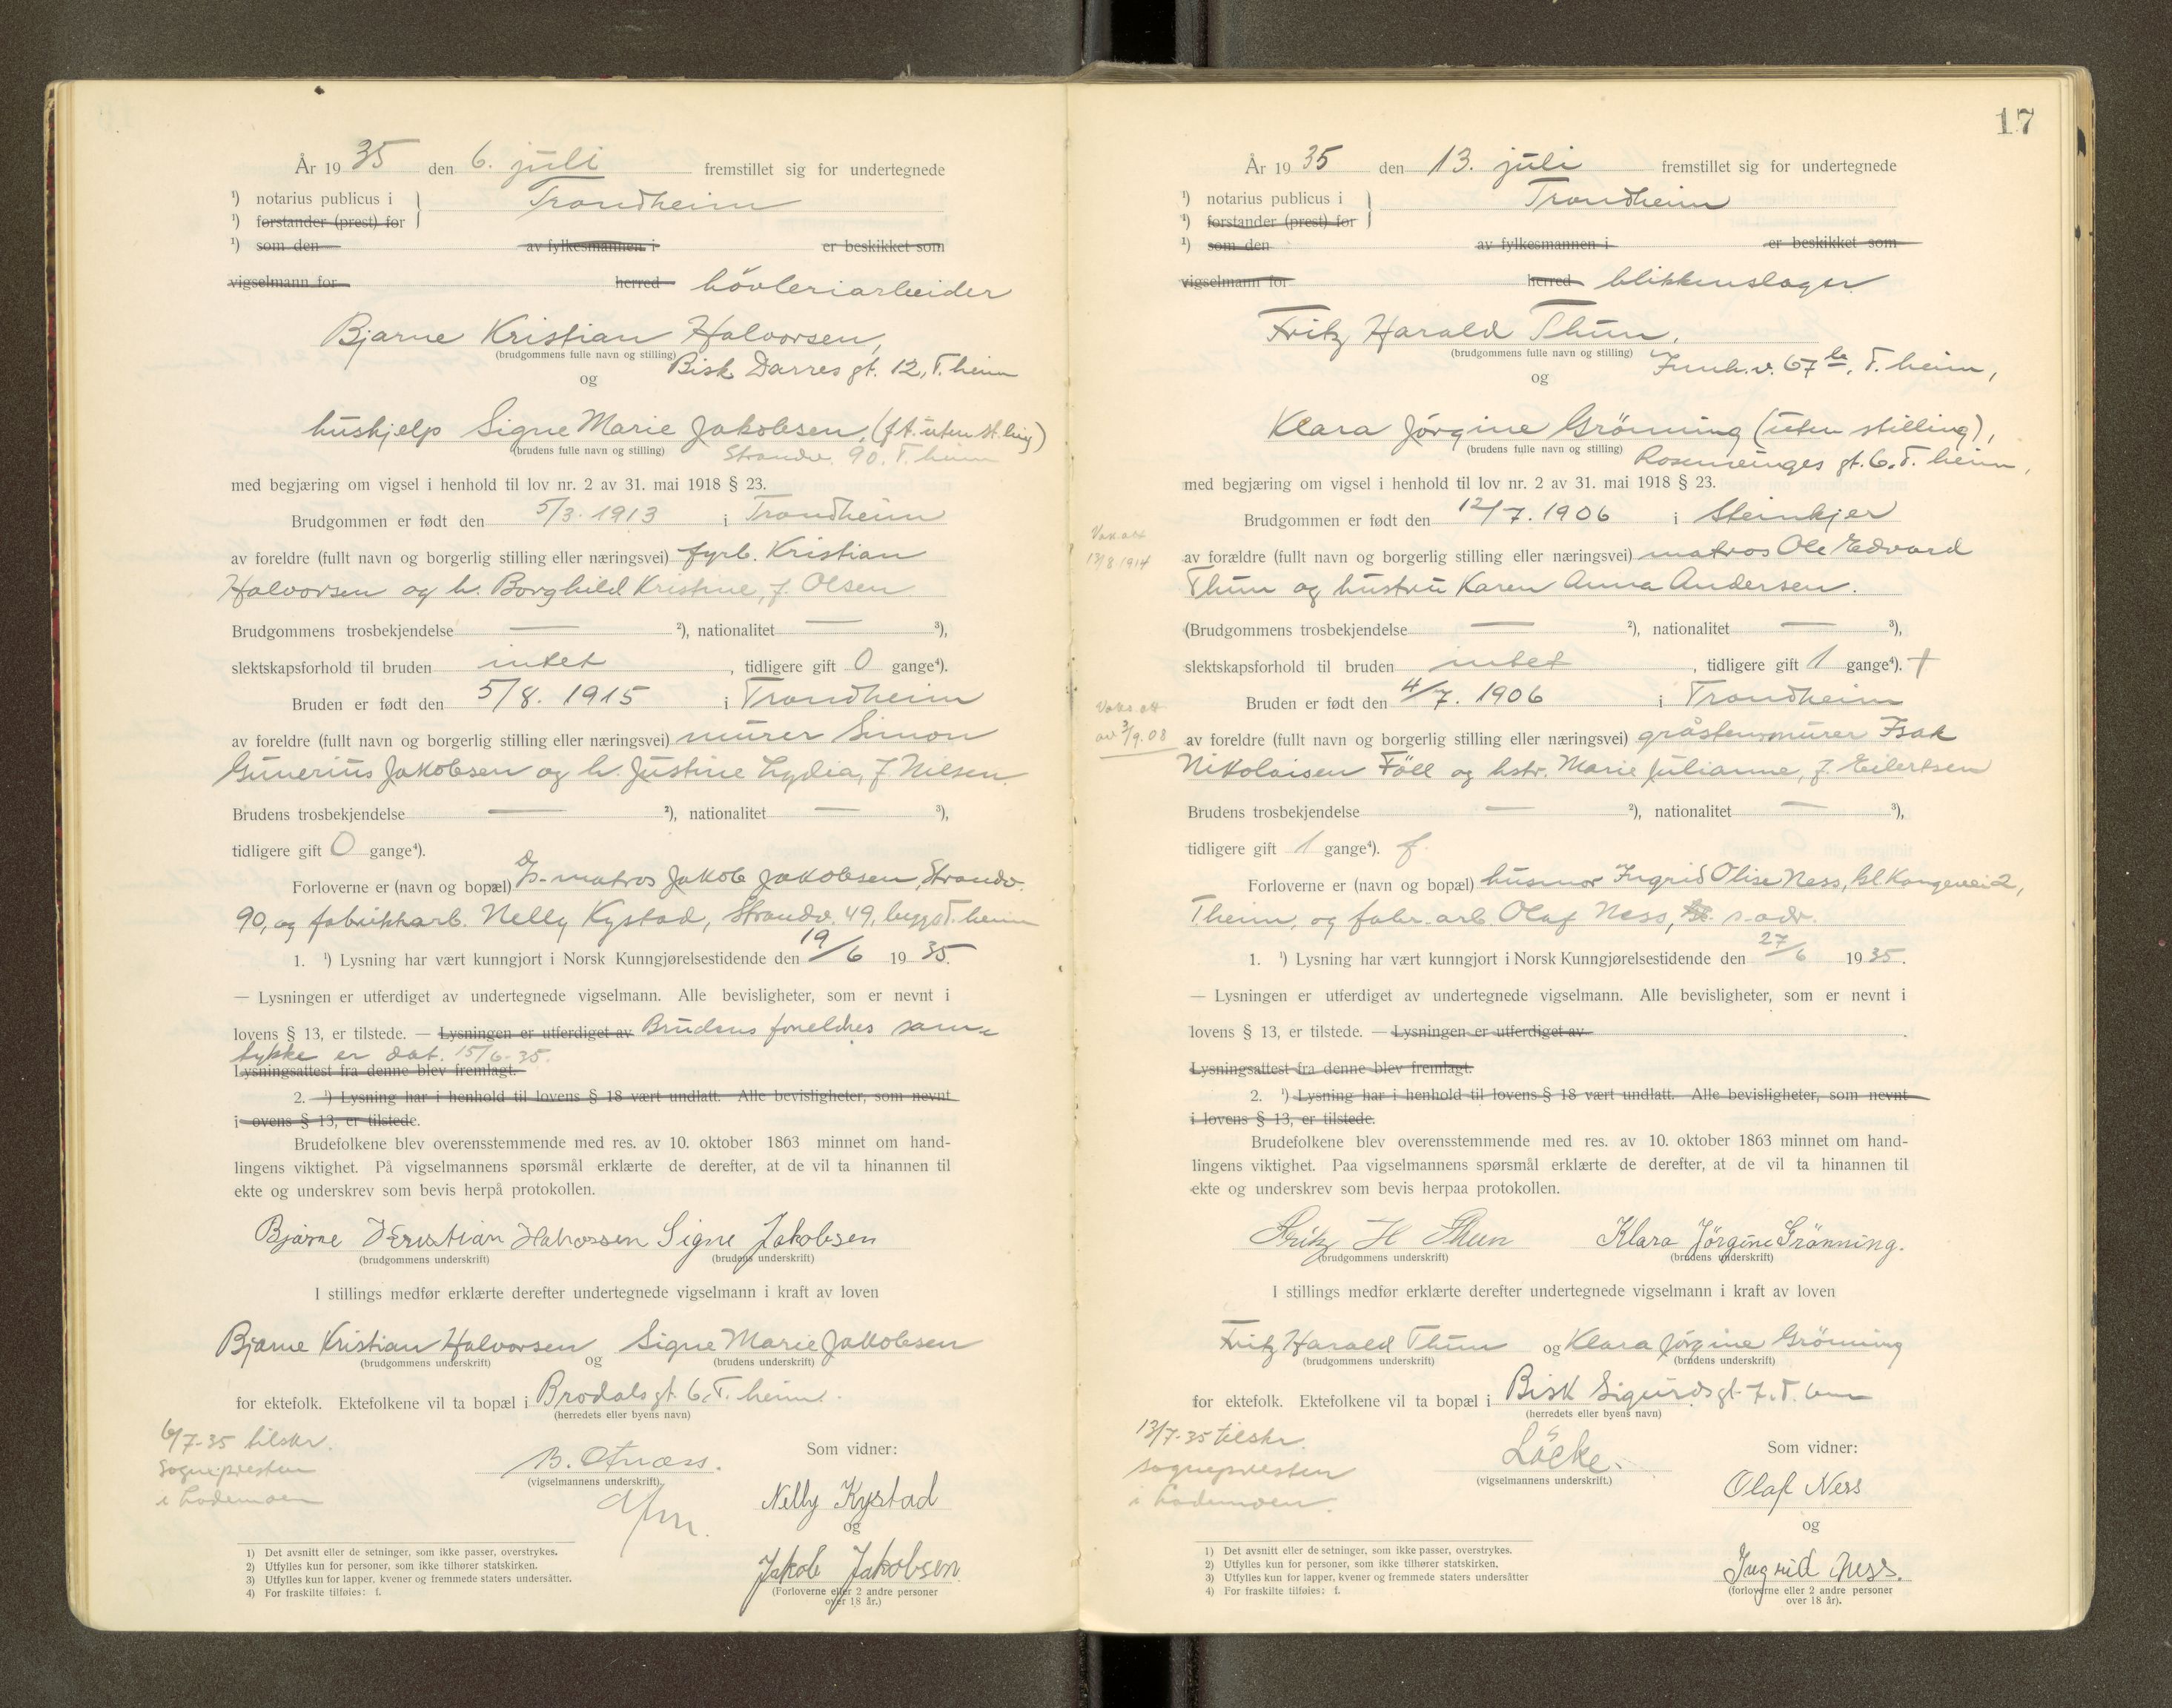 År 1935 den 6. juli fremstillet sig for undertegnede
¹) notarius publicus i } Trondheim
¹) forstander (prest) for
¹) som den av fylkesmannen i er beskikket som
vigselmann for herred hövleriarbeider
Bjarne Kristian Halvorsen,
(brudgommens fulle navn og stilling) Bisk Darres gt. 12, T.heim
og
hushjelp Signe Marie Jakobsen, (f.t. uten st.ling)
(brudens fulle navn og stilling) Strandv. 90. T.heim
med begjæring om vigsel i henhold til lov nr. 2 av 31. mai 1918 § 23.
Brudgommen er født den 5/3. 1913 i Trondheim
av foreldre (fullt navn og borgerlig stilling eller næringsvei) fyrb. Kristian
Halvorsen og h. Borghild Kristine, f. Olsen
Brudgommens trosbekjendelse — ²), nationalitet — ³),
slektskapsforhold til bruden intet , tidligere gift 0 gange⁴).
Bruden er født den 5/8. 1915 i Trondheim
av foreldre (fullt navn og borgerlig stilling eller næringsvei) murer Simon
Gunerius Jakobsen og h. Justine Lydia, f. Nilsen
Brudens trosbekjendelse — ²), nationalitet — ³),
tidligere gift 0 gange⁴).
Forloverne er (navn og bopæl) matros Jakob Jakobsen, Strandv.
90, og fabrikkarb. Nelly Kystad, Strandv. 49, begge T.heim
1. ¹) Lysning har vært kunngjort i Norsk Kunngjørelsestidende den 19/6 1935.
— Lysningen er utferdiget av undertegnede vigselmann. Alle bevisligheter, som er nevnt i
lovens § 13, er tilstede. — Lysningen er utferdiget av Brudens foreldres sam-
tykke er dat. 15/6-35.
Lysningsattest fra denne blev fremlagt.
2. ¹) Lysning har i henhold til lovens § 18 vært undlatt. Alle bevisligheter, som nevnt
i ovens § 13, er tilstede.
Brudefolkene blev overensstemmende med res. av 10. oktober 1863 minnet om hand-
lingens viktighet. På vigselmannens spørsmål erklærte de derefter, at de vil ta hinannen til
ekte og underskrev som bevis herpå protokollen.
Bjarne Kristian Halvorsen Signe Jakobsen
(brudgommens underskrift) (brudens underskrift)
I stillings medfør erklærte derefter undertegnede vigselmann i kraft av loven
Bjarne Kristian Halvorsen og Signe Marie Jakobsen
(brudgommens underskrift) (brudens underskrift)
for ektefolk. Ektefolkene vil ta bopæl i Brodals gt. 6, T.heim.
(herredets eller byens navn)
6/7-35 tilskr.
sognepresten
i Lademoen
Som vidner:
(vigselmannens underskrift).
Nelly Kystad
og
Jakob Jakobsen
(Forloverne eller 2 andre personer
over 18 år.)
1) Det avsnitt eller de setninger, som ikke passer, overstrykes.
2) Utfylles kun for personer, som ikke tilhører statskirken.
3) Utfylles kun for lapper, kvener og fremmede staters undersåtter.
4) For fraskilte tilføies: f.
17
År 1935 den 13. juli fremstillet sig for undertegnede
¹) notarius publicus i } Trondheim
¹) forstander (prest) for
¹) som den av fylkesmannen i er beskikket som
vigselmann for herred blikkenslager
Fritz Harald Thun,
(brudgommens fulle navn og stilling) Innh.v. 67 b, T.heim,
og
Klara Jörgine Grönning (uten stilling),
(brudens fulle navn og stilling) gt. 6. T.heim,
med begjæring om vigsel i henhold til lov nr. 2 av 31. mai 1918 § 23.
Brudgommen er født den 12/7. 1906 i Steinkjer
Vak.att
13/8 1914
av forældre (fullt navn og borgerlig stilling eller næringsvei) matros Ole Edvard
Thun og hustru Karen Anna Andersen.
(Brudgommens trosbekjendelse — ²), nationalitet — ³),
slektskapsforhold til bruden intet , tidligere gift 1 gange⁴). †
Bruden er født den 4/7. 1906 i Trondheim
Vaks att
av 3/9.08
av foreldre (fullt navn og borgerlig stilling eller næringsvei) gråstensmurer Isak
Nikolaisen Föll og hstr. Marie Julianne, f. Eilertsen
Brudens trosbekjendelse — ²), nationalitet — ³),
tidligere gift 1 gange⁴). f.
Forloverne er (navn og bopæl) husmor Ingrid Olise Ness, bl. Kongevei 2,
T.heim, og fabr. arb. Olaf Ness, s. adr.
1. ¹) Lysning har vært kunngjort i Norsk Kunngjørelsestidende den 27/6 1935.
— Lysningen er utferdiget av undertegnede vigselmann. Alle bevisligheter, som er nevnt i
lovens § 13, er tilstede. — Lysningen er utferdiget av
Lysningsattest fra denne blev fremlagt.
2. ¹) Lysning har i henhold til lovens § 18 vært undlatt. Alle bevisligheter, som nevnt
i lovens § 13, er tilstede.
Brudefolkene blev overensstemmende med res. av 10. oktober 1863 minnet om hand-
lingens viktighet. Paa vigselmannens spørsmål erklærte de derefter, at de vil ta hinannen til
ekte og underskrev som bevis herpaa protokollen.
Fritz H Thun Klara Jørgine Grönning.
(brudgommens underskrift) (brudens underskrift)
I stillings medfør erklærte derefter undertegnede vigselmann i kraft av loven
Fritz Harald Thun og Klara Jörgine Grönning
(brudgommens underskrift) (brudens underskrift)
for ektefolk. Ektefolkene vil ta bopæl i Bisk Sigurds gt. 7. T.heim
(herredets eller byens navn)
13/7-35 tilskr.
sognepresten
i Lademoen.
Löcke.
(vigselmannens underskrift.)
Som vidner:
Olaf Ness
og
Ingrid Ness.
(forloverne eller 2 andre personer
over 18 år).
1) Det avsnitt eller de setninger, som ikke passer, overstrykes.
2) Utfylles kun for personer, som ikke tilhører statskirken.
3) Utfylles kun for lapper, kvener og fremmede staters undersåtter
4) For fraskilte tilføies: f.